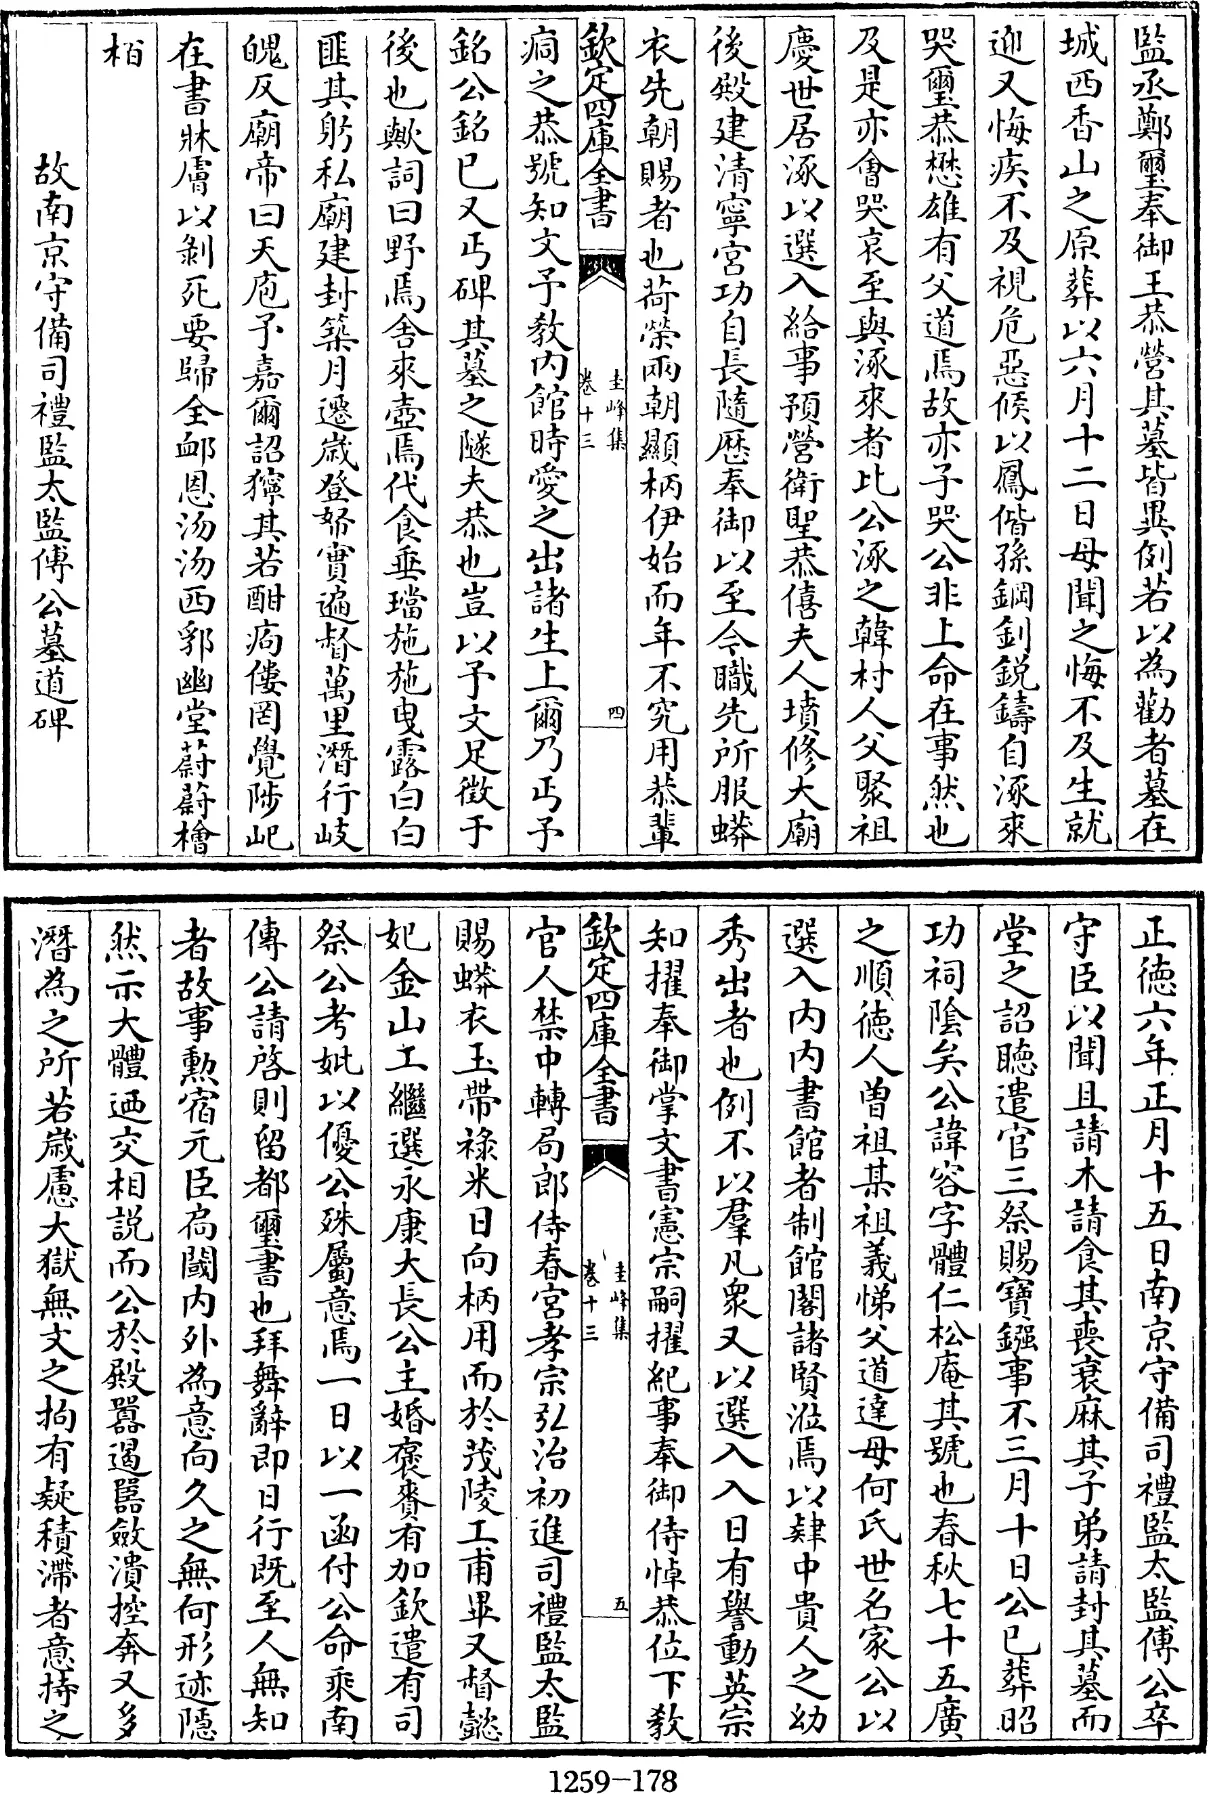 監丞鄭璽奉御王恭營其墓皆異例若以為勸者墓在
城西香山之原葬以六月十二日母聞之悔不及生就
迎又悔疾不及視危惡候以鳳偕孫鋼釗鋭鑄自涿來
哭璽恭懋雄有父道焉故亦子哭公非上命在事然也
及是亦會哭哀至與涿來者比公涿之韓村人父聚祖
慶世居涿以選入給事預營衛聖恭僖夫人墳修大廟
後殿建清寧宮功自長隨歷奉御以至今職先所服蟒
衣先朝賜者也荷榮兩朝顯柄伊始而年不究用恭輩
欽定四庫全書
圭峰集
卷十三
四
痌之恭號知文予教内館時愛之出諸生上爾乃丐予
銘公銘已又丐碑其墓之隧夫恭也豈以予文足徵于
後也歟詞曰野焉舍來壺焉代食垂璫施施曳露白白
匪其躬私廟建封築月遷歲登帑實遍督萬里潛行岐
魄反廟帝曰天庖予嘉爾詔獰其若酣痀僂罔覺陟屺
在書牀膚以剝死要歸全䘏恩汤汤西郛幽堂蔚蔚檜
栢
故南京守備司禮監太監傅公墓道碑
正德六年正月十五日南京守備司禮監太監傅公卒
守臣以聞且請木請食其喪衰麻其子弟請封其墓而
堂之詔聽遣官三祭賜寶鏹事不三月十日公已葬昭
功祠陰矣公諱容字體仁松庵其號也春秋七十五廣
之順德人曾祖某祖義悌父道達母何氏世名家公以
選入内内書館者制館閣諸賢涖焉以肄中貴人之幼
秀出者也例不以羣凡衆又以選入入日有譽動英宗
知擢奉御掌文書憲宗嗣擢紀事奉御侍悼恭位下教
欽定四庫全書
圭峰集
卷十三
五
官人禁中轉局郎侍春宮孝宗弘治初進司禮監太監
賜蟒衣玉帶祿米日向柄用而於茂陵工甫畢又督懿
妃金山工繼選永康大長公主婚褒賚有加欽遣有司
祭公考妣以優公殊屬意焉一日以一函付公命乘南
傳公請啓則留都璽書也拜舞辭即日行既至人無知
者故事勲宿元臣扃閾内外為意向久之無何形迹隱
然示大體迺交相説而公於殿嚚遏嚚斂潰控奔又多
潛為之所若歲慮大獄無文之拘有疑積滯者意持之
1259-178